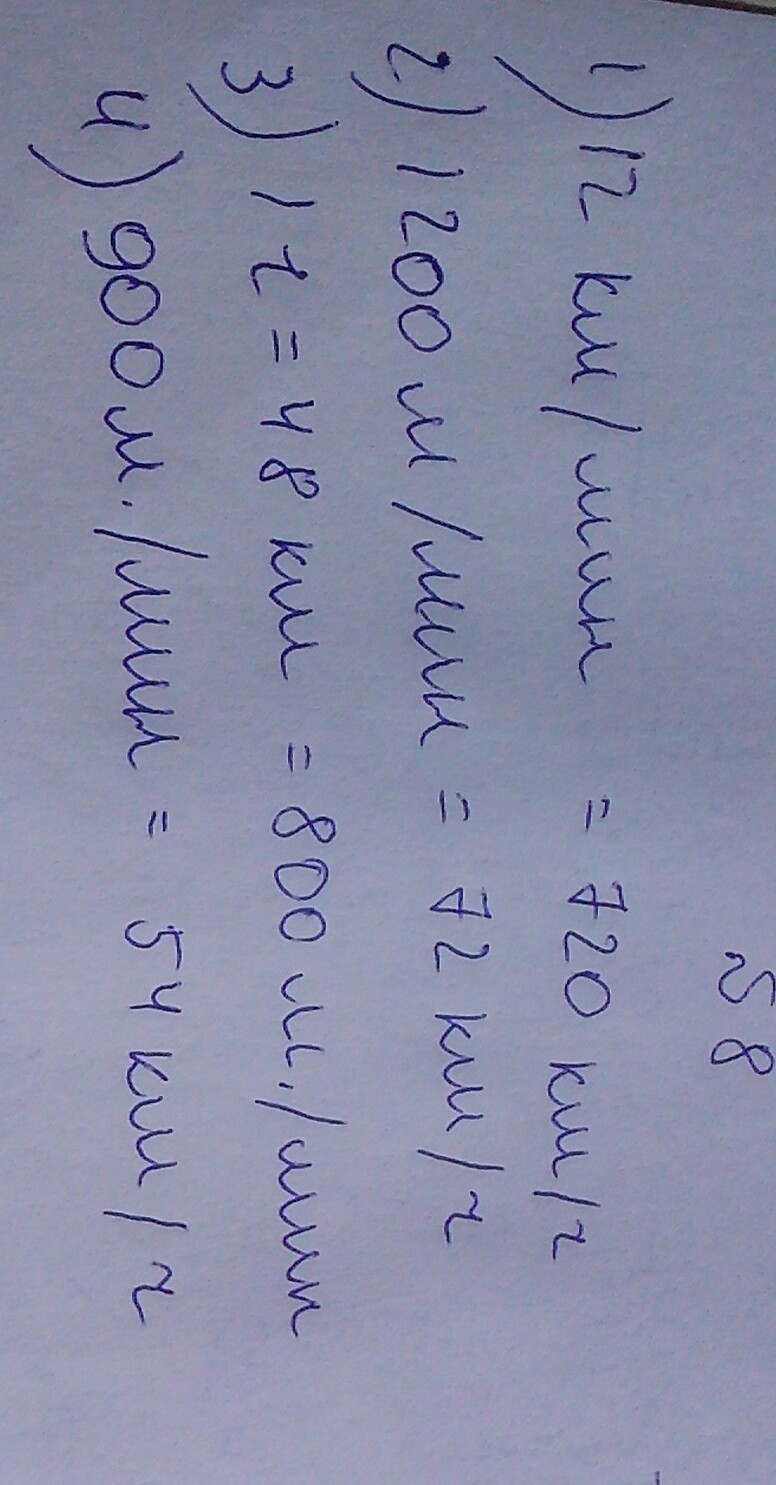 58
1) 12 км/мин = 720 км/ч
2) 1200 м/мин = 72 км/ч
3) 1 ч = 48 км = 800 м./мин
4) 900 м./мин = 54 км/ч